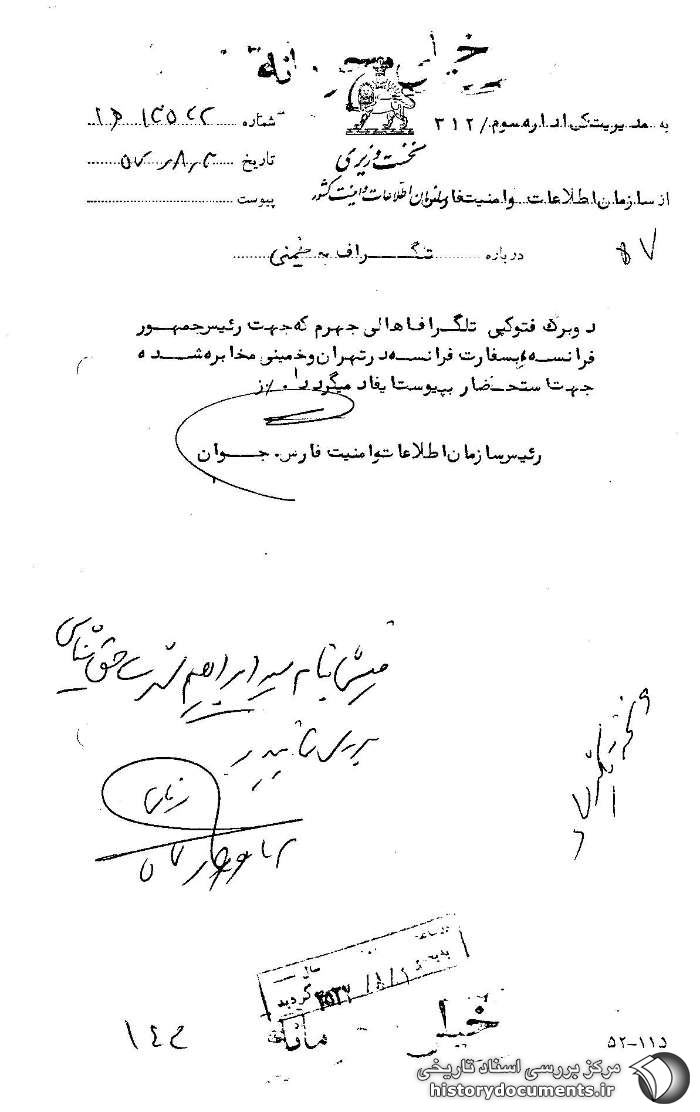 خیلی محرمانه
به مدیریت کل اداره سوم / ۳۱۲
شماره
نخست وزیری
تاریخ
از سازمان اطلاعات و امنیت فارس
سازمان اطلاعات و امنیت کشور
پیوست
۵۷
درباره تلگراف به خمینی
دو برگ فتوکپی تلگراف اهالی جهرم که جهت رئیس جمهور
فرانسه به سفارت فرانسه در تهران و خمینی مخابره شده
جهت استحضار بپیوست ایفاد میگردد.
رئیس سازمان اطلاعات و امنیت فارس. جوان
سید ابراهیم
حق شناس
بررسی نمائید
سال
گردید
خیلی محرمانه
۱۴۲
۵۲-۱۱۵
مرکز بررسی اسناد تاریخی
historydocuments.ir